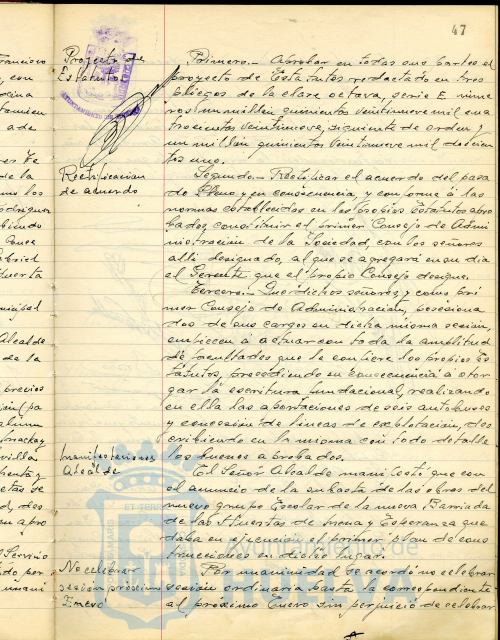 47
Proyecto de
Estatutos
Primero.- Aprobar en todas sus partes el
proyecto de Estatutos redactado en tres
pliegos de la clase octava, serie E. núme
ros un millón quinientos veintinueve mil cua
trocientos veintinueve, siguiente de orden y
un millón quinientos veintinueve mil doscien
tos uno.
Rectificación
de acuerdo
Segundo.- Rectificar el acuerdo del pasa
do Pleno y en consecuencia, y conforme á las
normas establecidas en los propios Estatutos apro
bados, constituir el primer Consejo de Admi
nistración de la Sociedad, con los señores
allí designado, al que se agregará en su día
el Gerente que el propio Consejo designe.
Tercero.- Que dichos señores, y como pri
mer Consejo de Administración, posesiona
dos de sus cargos en dicha misma sesión,
empiecen á actuar con toda la amplitud
de facultades que le confiere los propios Es
tatutos, procediendo en consecuencia á otor
gar la escritura fundacional, realizando
en ella las aportaciones de seis autobuses
y concesión de líneas de explotación, des
cribiendo en la misma con todo detalle
los buenos aprobados.
Manifestaciones
Alcalde
El Señor Alcalde manifestó que con
el anuncio de la subasta de las obras del
nuevo grupo Escolar de la nueva Barriada
de las Huertas de Mena y Esperanza que
daba en ejecución el primer plan de cons
trucciones en dicho lugar.
No celebrar
sesión próximo
Enero
Por unanimidad se acordó no celebrar
sesión ordinaria hasta la correspondiente
al próximo Enero sin perjuicio de celebrar